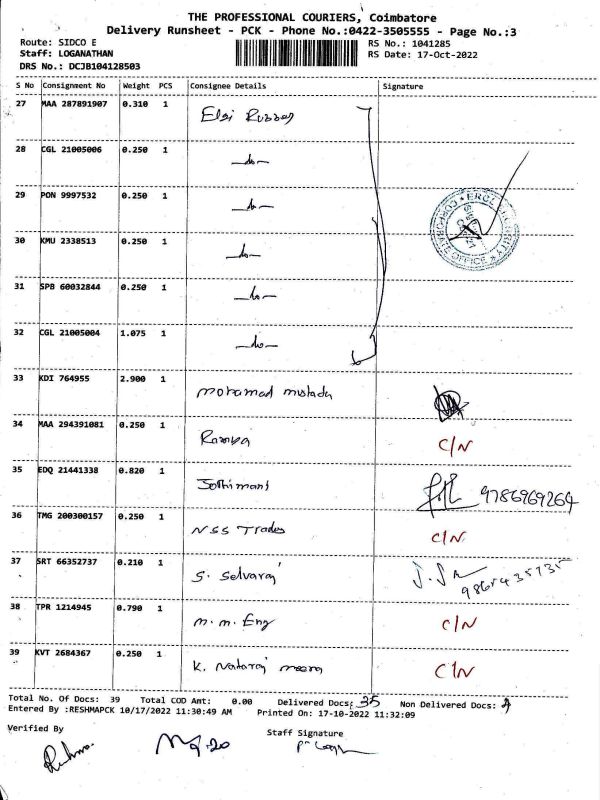 THE PROFESSIONAL COURIERS, Coimbatore
Delivery Runsheet - PCK - Phone No.:0422-3505555 - Page No.:3
Route: SIDCO E
Staff: LOGANATHAN
DRS No.: DCJB104128503
RS No.: 1041285
RS Date: 17-Oct-2022
S No Consignment No Weight PCS Consignee Details Signature
27 MAA 287891907 0.310 1 Elgi Rubber
28 CGL 21005006 0.250 1 —do—
29 PON 9997532 0.250 1 —do—
30 KMU 2338513 0.250 1 —do—
31 SPB 60032844 0.250 1 —do—
32 CGL 21005004 1.075 1 —do—
CORPORATE OFFICE
33 KDI 764955 2.900 1 mohamad
34 MAA 294391081 0.250 1 C/N
35 EDQ 21441338 0.820 1 Jothimani 9786969264
36 TMG 200300157 0.250 1 NSS Trades C/N
37 SRT 66352737 0.210 1 S. Selvaraj
38 TPR 1214945 0.790 1 m.m. Eng C/N
39 KVT 2684367 0.250 1 K. Nataraj meena C/N
Total No. Of Docs: 39 Total COD Amt: 0.00 Delivered Docs: 35 Non Delivered Docs: 4
Entered By :RESHMAPCK 10/17/2022 11:30:49 AM Printed On: 17-10-2022 11:32:09
Verified By
Staff Signature